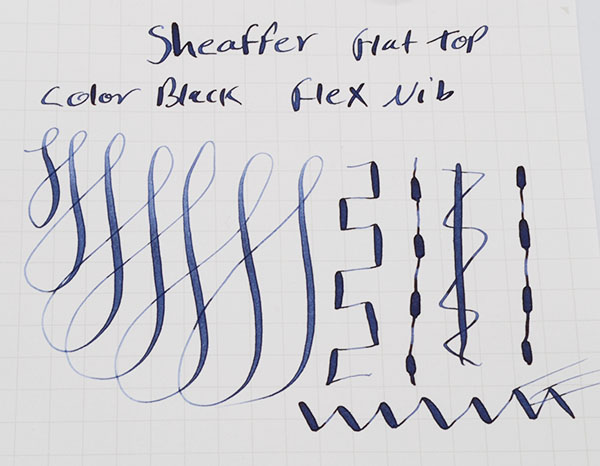 Sheaffer Flat Top
Color Black Flex Nib